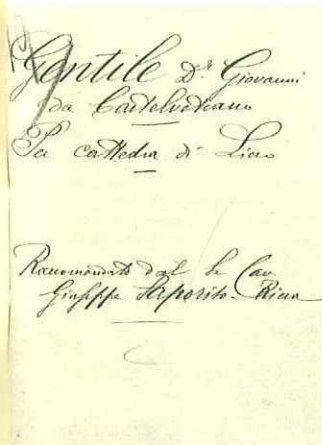 Gentile Dr. Giovanni
da Castelvetrano
Per cattedra di Liceo
Raccomandato dal Sr. Cav
Giuseppe Saporito-Ricca